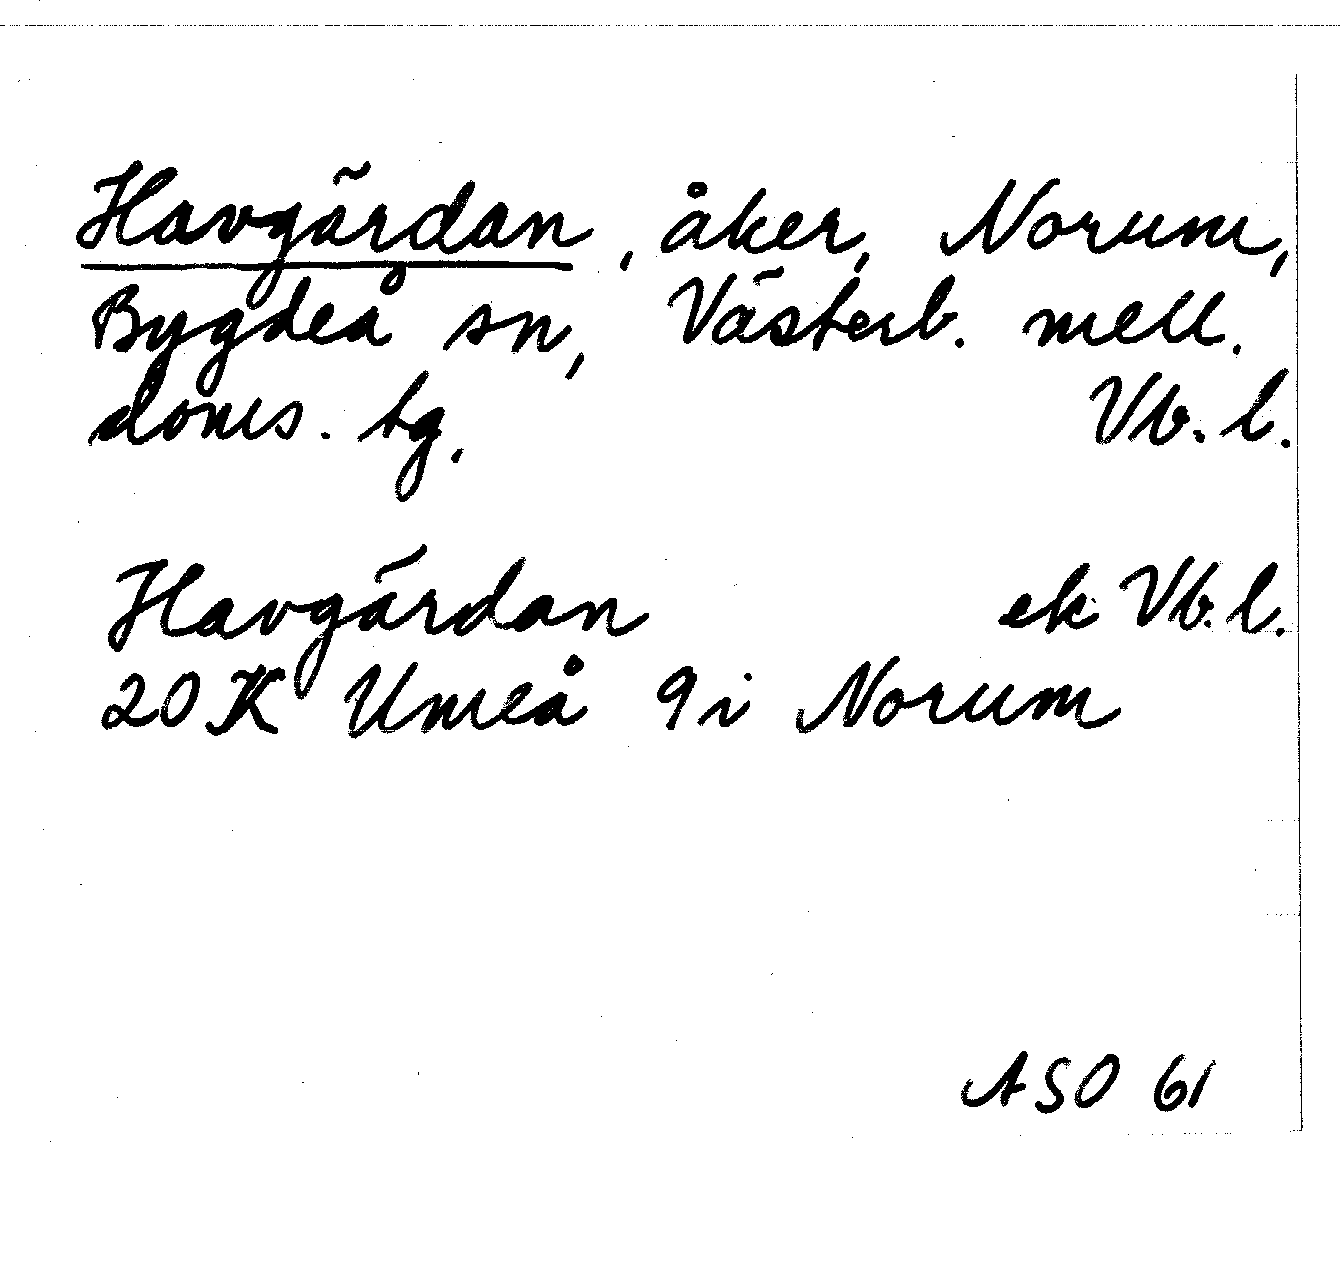 Havgärdan, åker, Norum,
Bygdeå sn, Västerb. mell.
doms. tg. Vb. l.
Havgärdan ek Vb. l.
20 K Umeå 9 i Norum
ASO 61